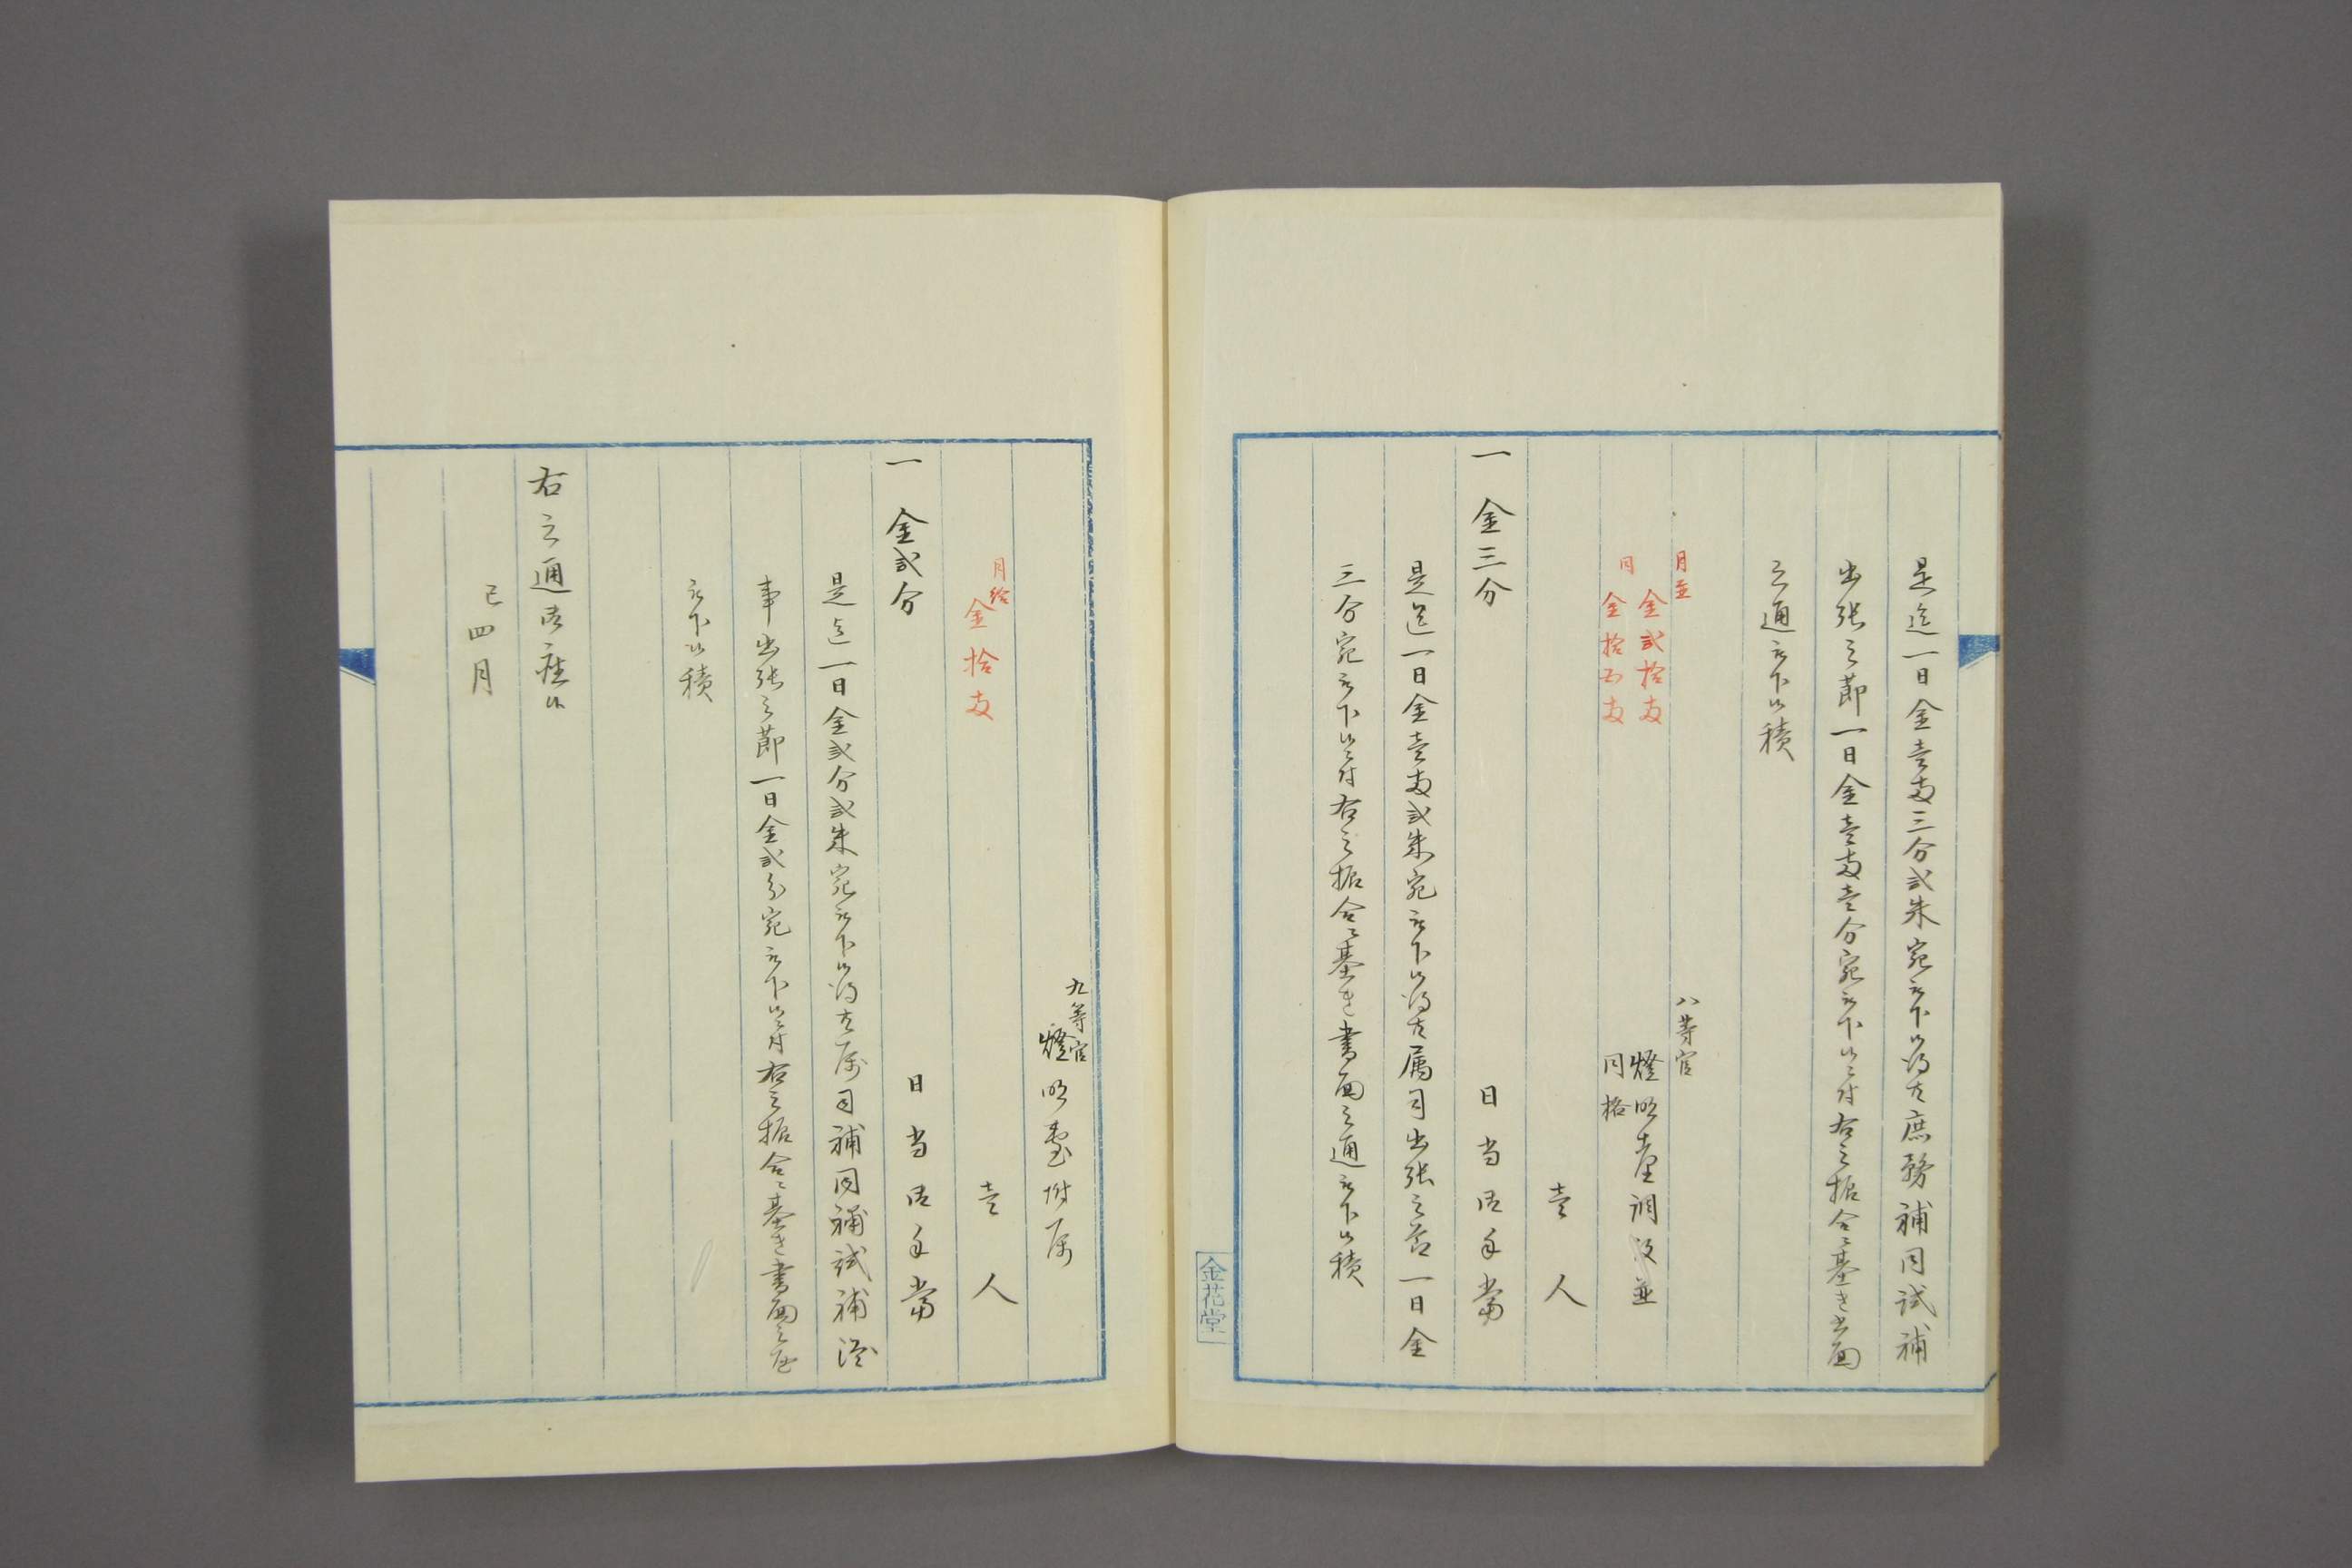 是迄一日金壱両三分弐朱宛被下候得共庶務補同試補
出張之節一日金壱両壱分宛被下候ニ付右之振合ニ基き書面
之通被下候積
八等官
月並 金弐拾両 燈明臺調役並
同 金拾五両 同格
壱人
一 金三分 日当御手當
是迄一日金壱両弐朱宛被下候得共属司出張之節一日金
三分宛被下候ニ付右之振合ニ基き書面之通被下候積
金花堂
九等官
燈明臺附属
月給 金拾両 壱人
一 金弐分 日当御手當
是迄一日金弐分弐朱宛被下候得共属司補同補試補
事出張之節一日金弐分宛被下候ニ付右之振合ニ基き書面之
被下候積
右之通御座候
巳四月